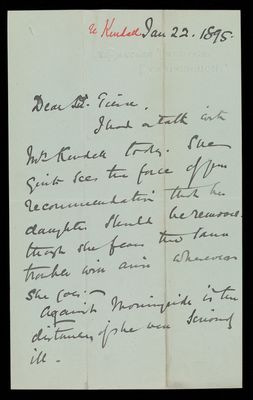 Kendell Jan 22. 1895.
Dear
I had a talk with
Mrs Kendell today. She
quite sees the force of your
recommendation that her
daughter should be removed
though she fears the same
trouble will arise wherever
she goes.
Against Morningside is the
distance, if she were seriously
ill.